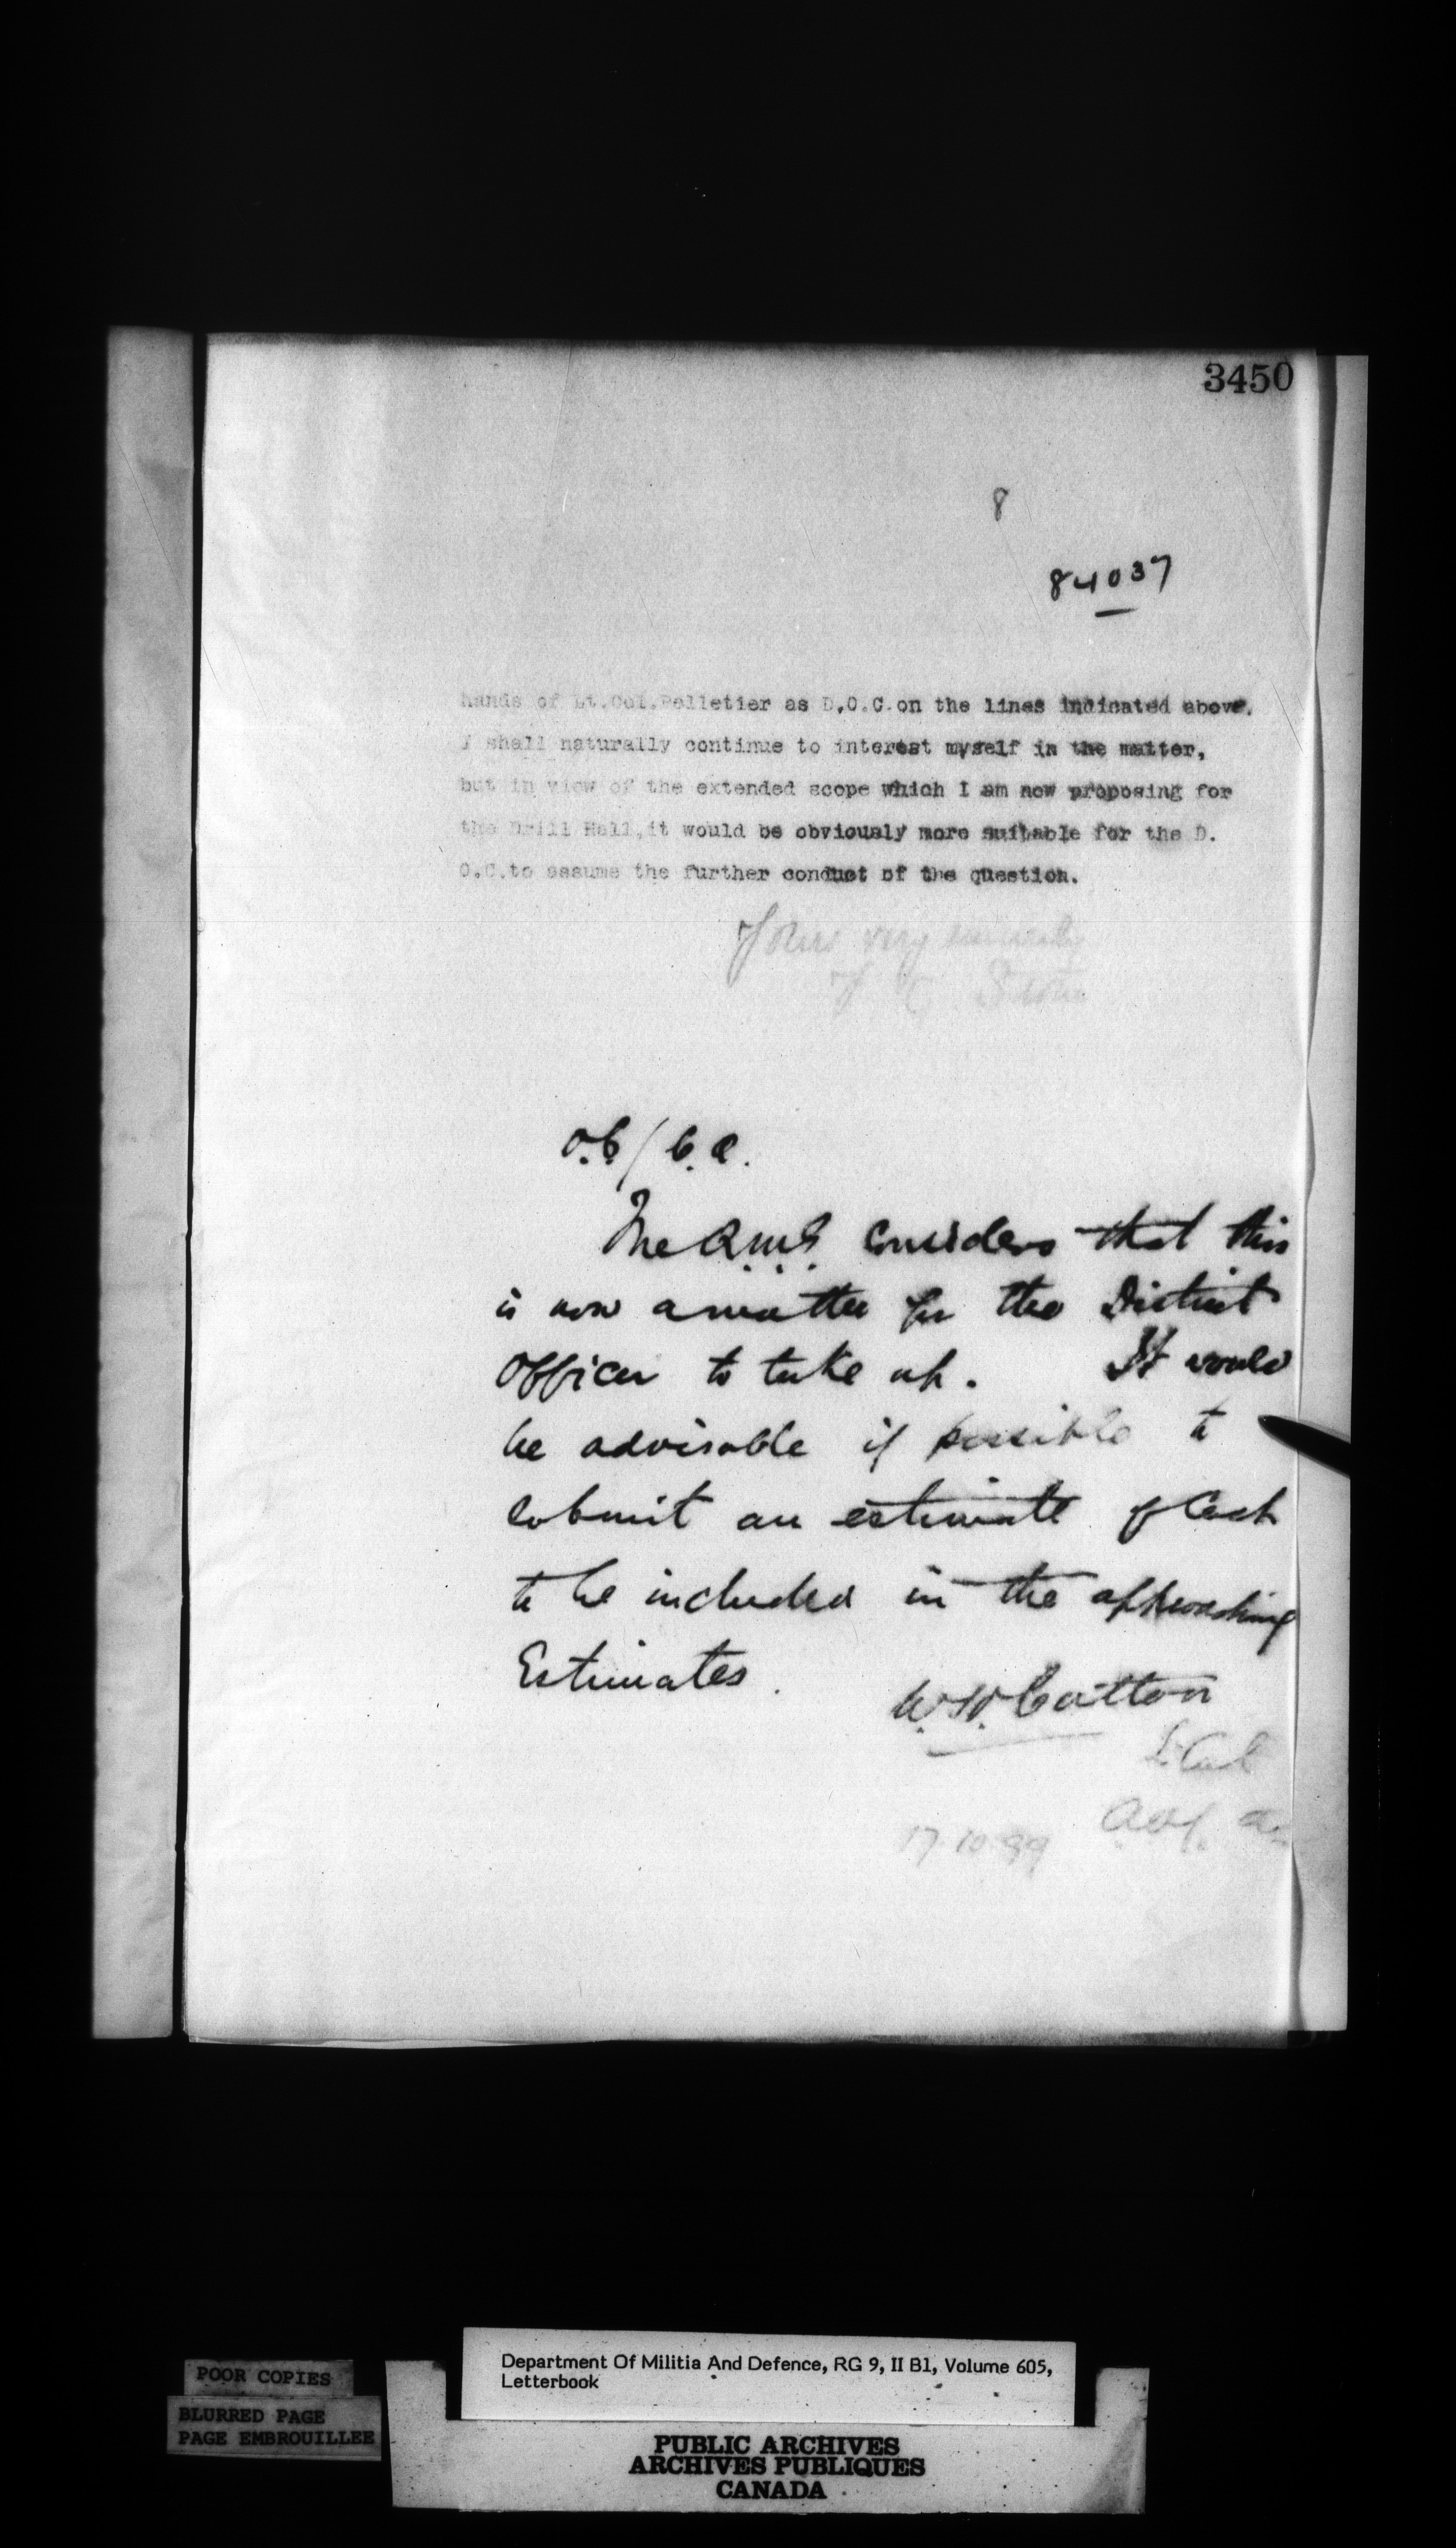 3450
8
84037
hands of Lt.Col.Pelletier as D.O.C.on the lines indicated above.
I shall naturally continue to interest myself in the matter,
but in view of the extended scope which I am now proposing for
the Drill Hall,it would be obviously more suitable for the D.
O.C.to assume the further conduct of the question.
Yours very sincerely
O.C/C.A.
The Q.M.G. considers that this
is now a matter for the District
Officer to take up. It would
be advisable if possible to
submit an estimate of Cost
to be included in the approaching
Estimates.
W.H. Cotton
Lt Col
17.10.99
POOR COPIES
BLURRED PAGE
PAGE EMBROUILLEE
Department Of Militia And Defence, RG 9, II B1, Volume 605,
Letterbook
PUBLIC ARCHIVES
ARCHIVES PUBLIQUES
CANADA